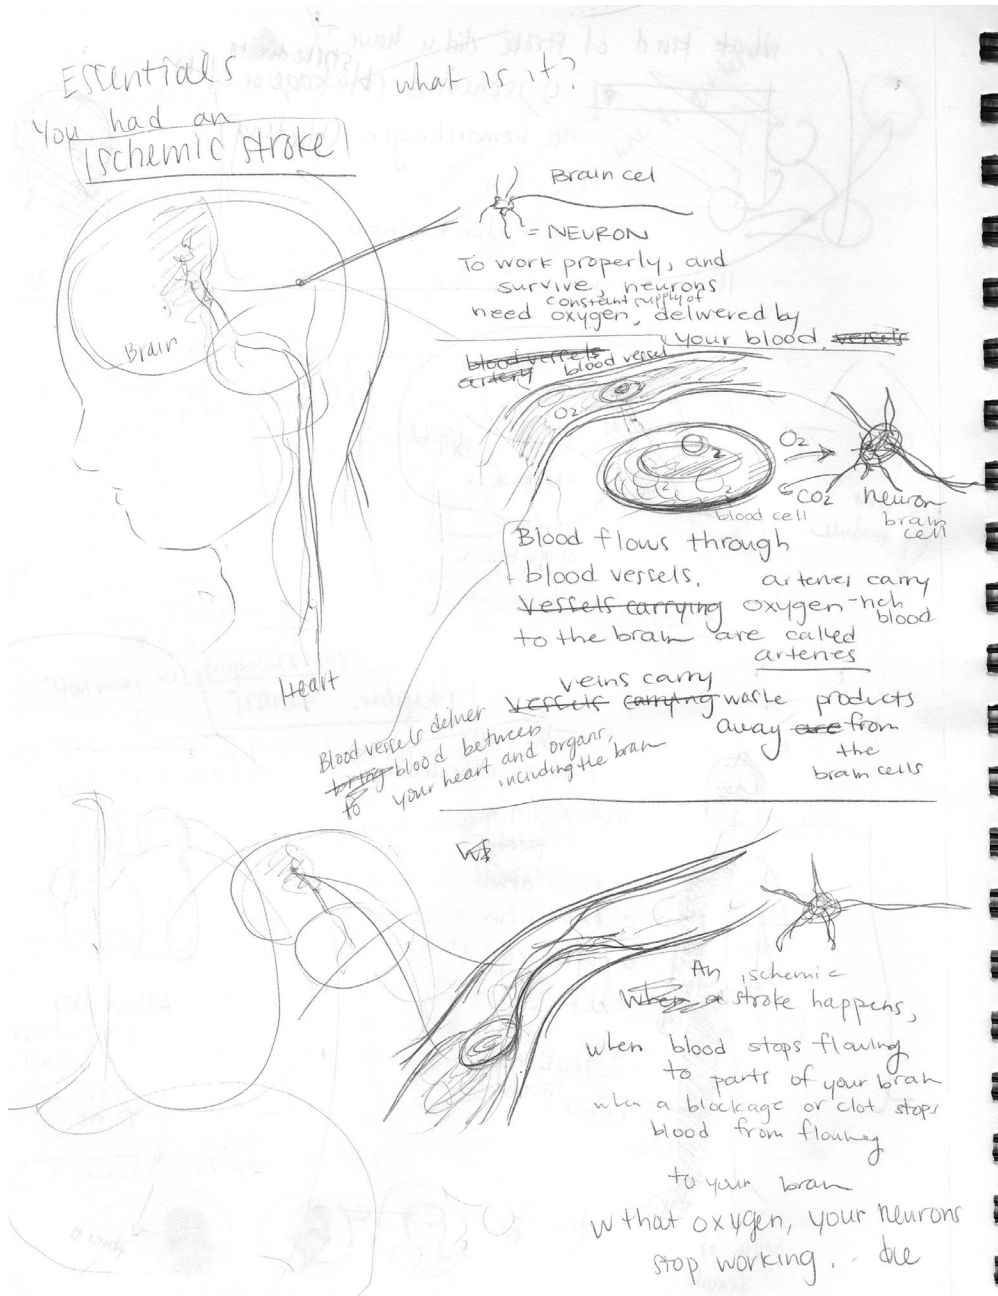 Essentials what is it?
You had an
Ischemic stroke
Brain cel
= NEURON
To work properly, and
survive, neurons
constant supply of
need oxygen, delivered by
your blood vessels
blood vessels
artery blood vessel
Brain
O2
O2
CO2
blood cell
neuron
brain
cell
Blood flows through
blood vessels. arteries carry
Vessels carrying oxygen-rich
blood
to the brain are called
arteries
veins carry
vessels carrying waste products
away are from
the
brain cells
Heart
Blood vessels deliver
bring blood between
to your heart and organs,
including the brain
An ischemic
When a stroke happens,
when blood stops flowing
to parts of your brain
when a blockage or clot stops
blood from flowing
to your brain
w that oxygen, your neurons
stop working. .. die